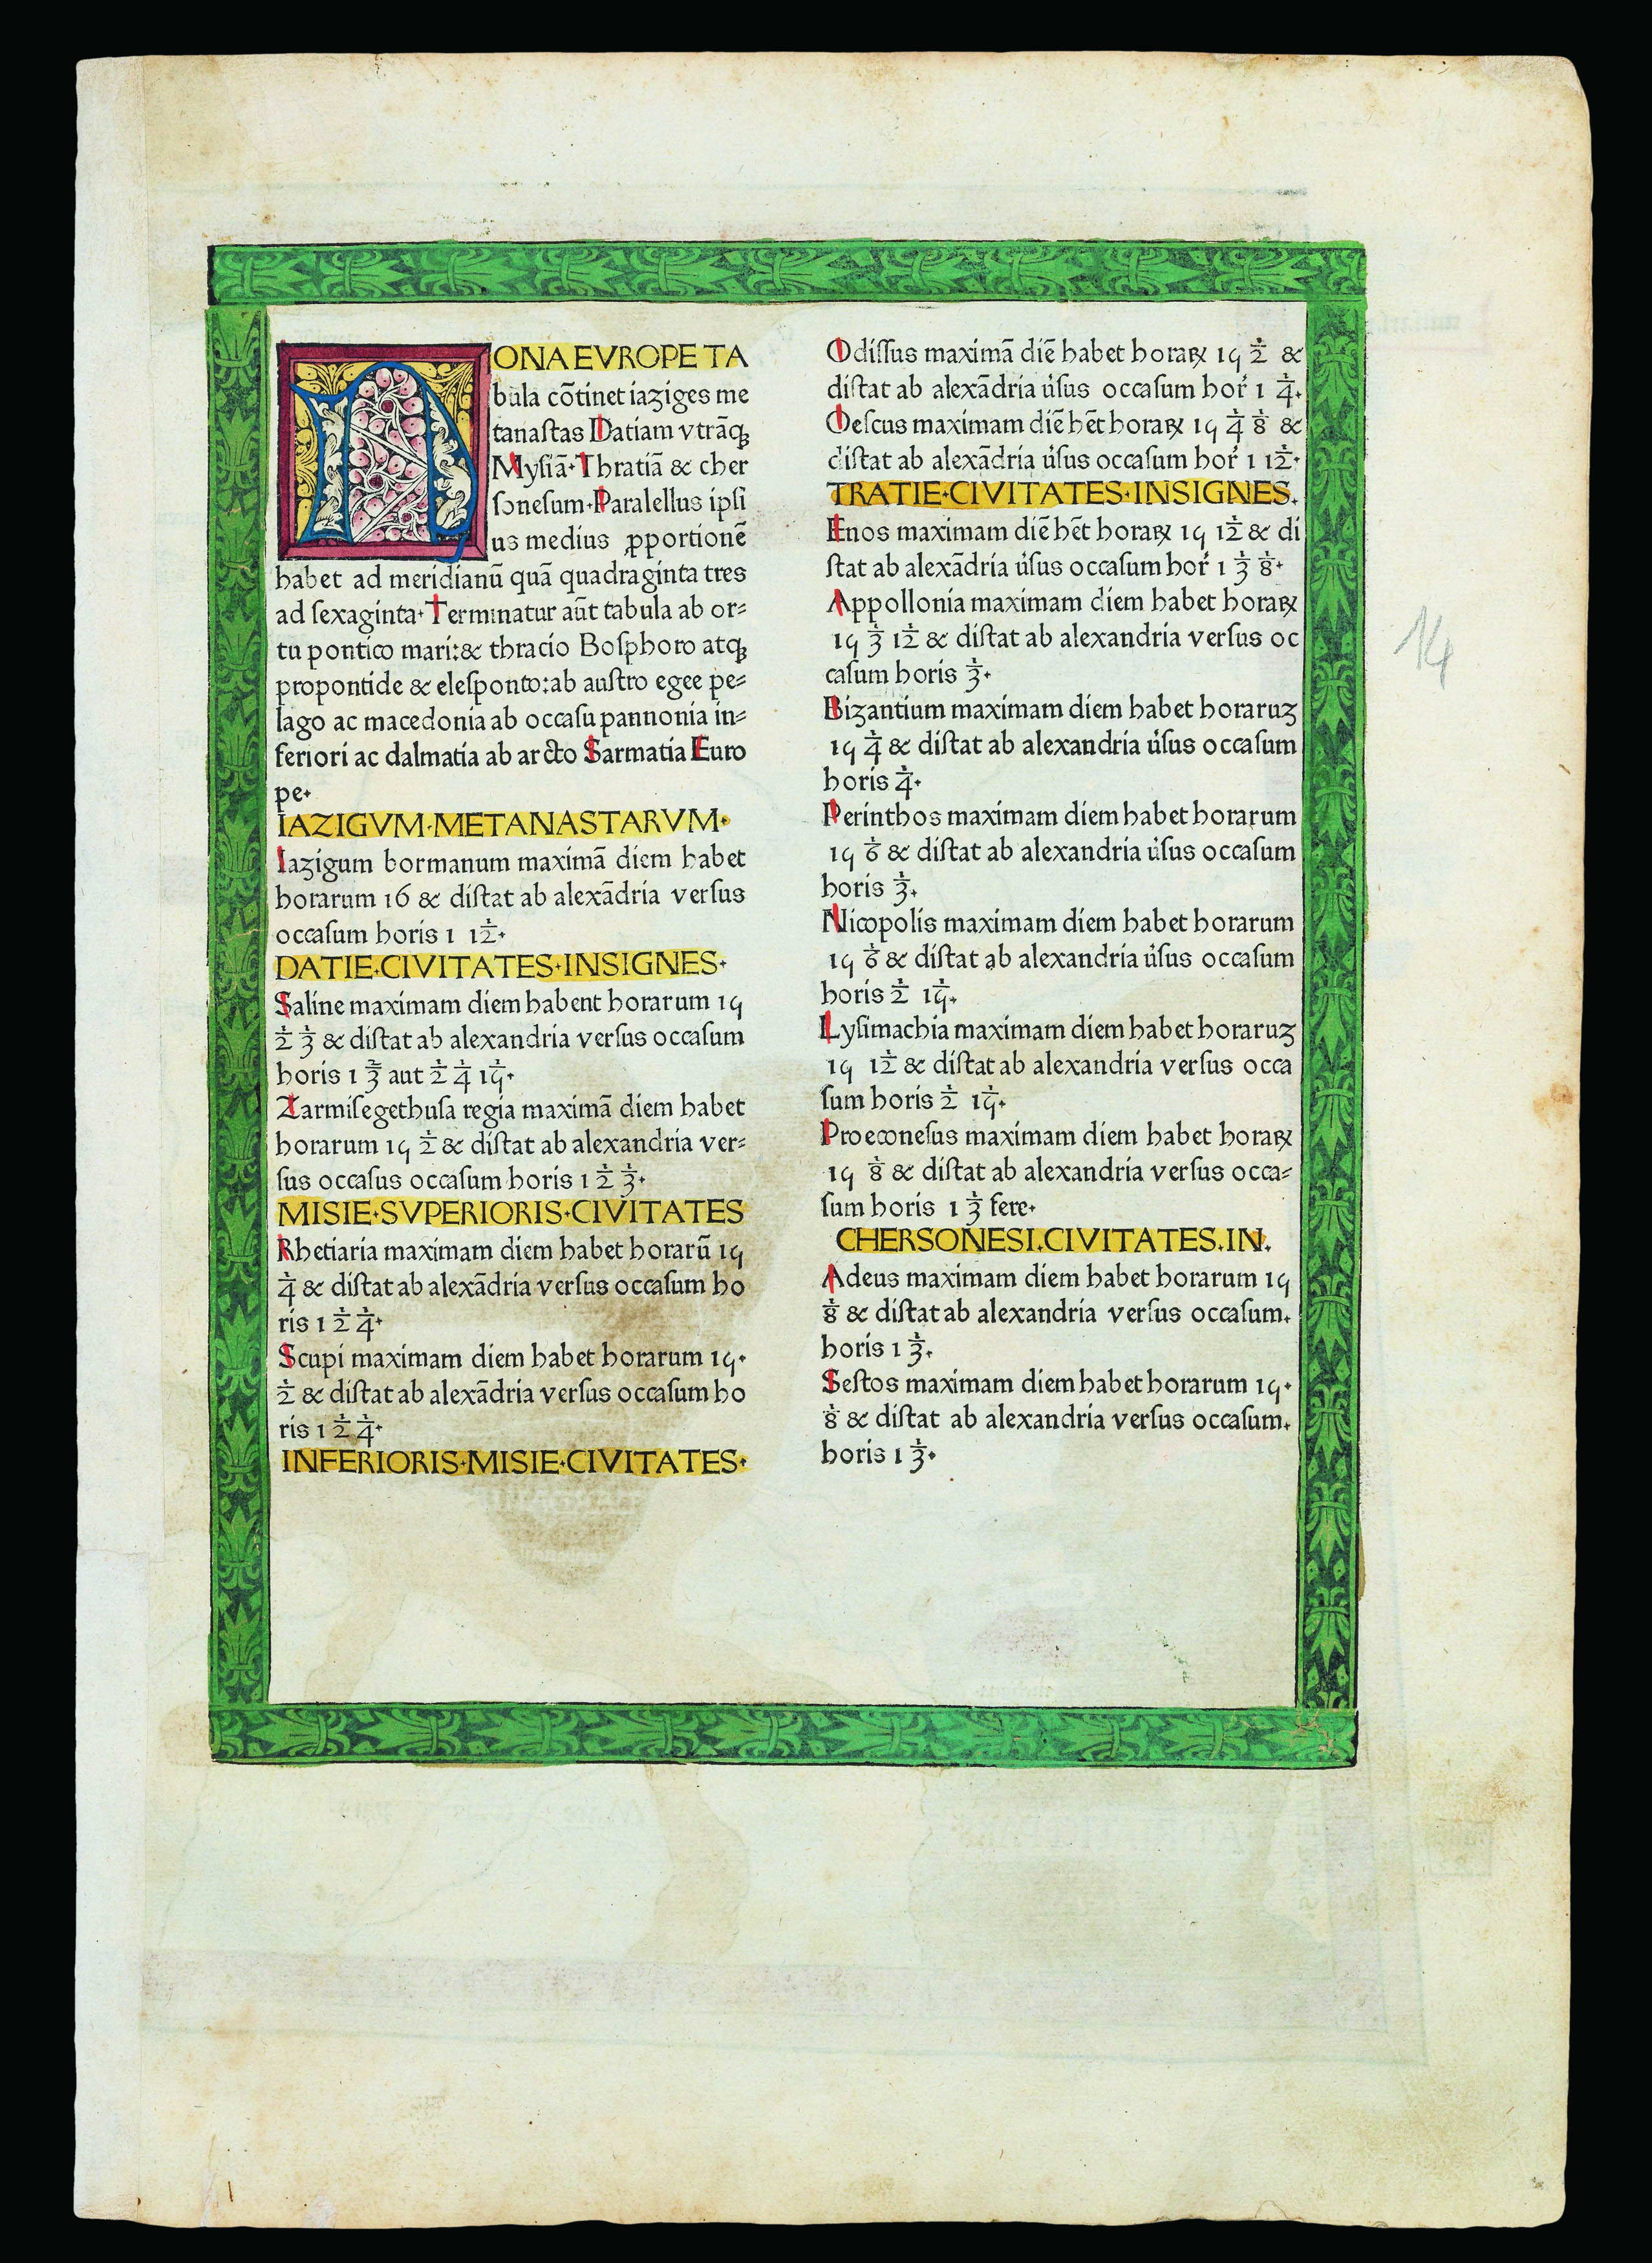 NONA EVROPE TA
bula cōtinet iaziges me
tanaſtas Datiam vtrāqꝫ
Myſiā·Thratiā & cher
ſoneſum·Paralellus ipſi
us medius ꝓportionē
habet ad meridianū quā quadraginta tres
ad ſexaginta·Terminatur aūt tabula ab or=
tu pontico mari:& thracio Boſphoro atqꝫ
propontide & eleſponto:ab auſtro egee pe=
lago ac macedonia ab occaſu pannonia in=
feriori ac dalmatia ab arcto Sarmatia Euro
pe·
IAZIGVM·METANASTARVM·
Iazigum bormanum maximā diem habet
horarum 16 & diſtat ab alexādria verſus
occaſum horis 1 1/12·
DATIE·CIVITATES·INSIGNES·
Saline maximam diem habent horarum 15
1/2 1/3 & diſtat ab alexandria verſus occaſum
horis 1 2/3 aut 1/2 1/4 1/15·
Zarmiſegethuſa regia maximā diem habet
horarum 15 1/2 & diſtat ab alexandria ver=
ſus occaſus occaſum horis 1 1/2 1/3·
MISIE·SVPERIORIS·CIVITATES
Rhetiaria maximam diem habet horarū 15
1/4 & diſtat ab alexādria verſus occaſum ho
ris 1 1/2 1/4·
Scupi maximam diem habet horarum 15·
1/2 & diſtat ab alexādria verſus occaſum ho
ris 1 1/2 1/4·
INFERIORIS·MISIE·CIVITATES·
Odiſſus maximā diē habet horaꝝ 15 1/2 &
diſtat ab alexādria u̓ſus occaſum hor̓ 1 1/4·
Oeſcus maximam diē hēt horaꝝ 15 1/4 1/8 &
diſtat ab alexādria u̓ſus occaſum hor̓ 1 1/12·
TRATIE·CIVITATES·INSIGNES.
Enos maximam diē hēt horaꝝ 15 1/12 & di
ſtat ab alexādria u̓ſus occaſum hor̓ 1 1/3 1/8·
Appollonia maximam diem habet horaꝝ
15 1/3 1/12 & diſtat ab alexandria verſus oc
caſum horis 1/3·
Bizantium maximam diem habet horaruꝫ
15 1/4 & diſtat ab alexandria u̓ſus occaſum
horis 1/4·
Perinthos maximam diem habet horarum
15 1/6 & diſtat ab alexandria u̓ſus occaſum
horis 1/3.
Nicopolis maximam diem habet horarum
15 1/6 & diſtat ab alexandria u̓ſus occaſum
horis 1/2 1/15.
Lyſimachia maximam diem habet horaruꝫ
15 1/12 & diſtat ab alexandria verſus occa
ſum horis 1/2 1/15.
Proeconeſus maximam diem habet horaꝝ
15 1/8 & diſtat ab alexandria verſus occa=
ſum horis 1 1/3 fere·
CHERSONESI.CIVITATES.IN.
Adeus maximam diem habet horarum 15
1/8 & diſtat ab alexandria verſus occaſum.
horis 1 1/3.
Seſtos maximam diem habet horarum 15·
1/8 & diſtat ab alexandria verſus occaſum.
horis 1 1/3·
14